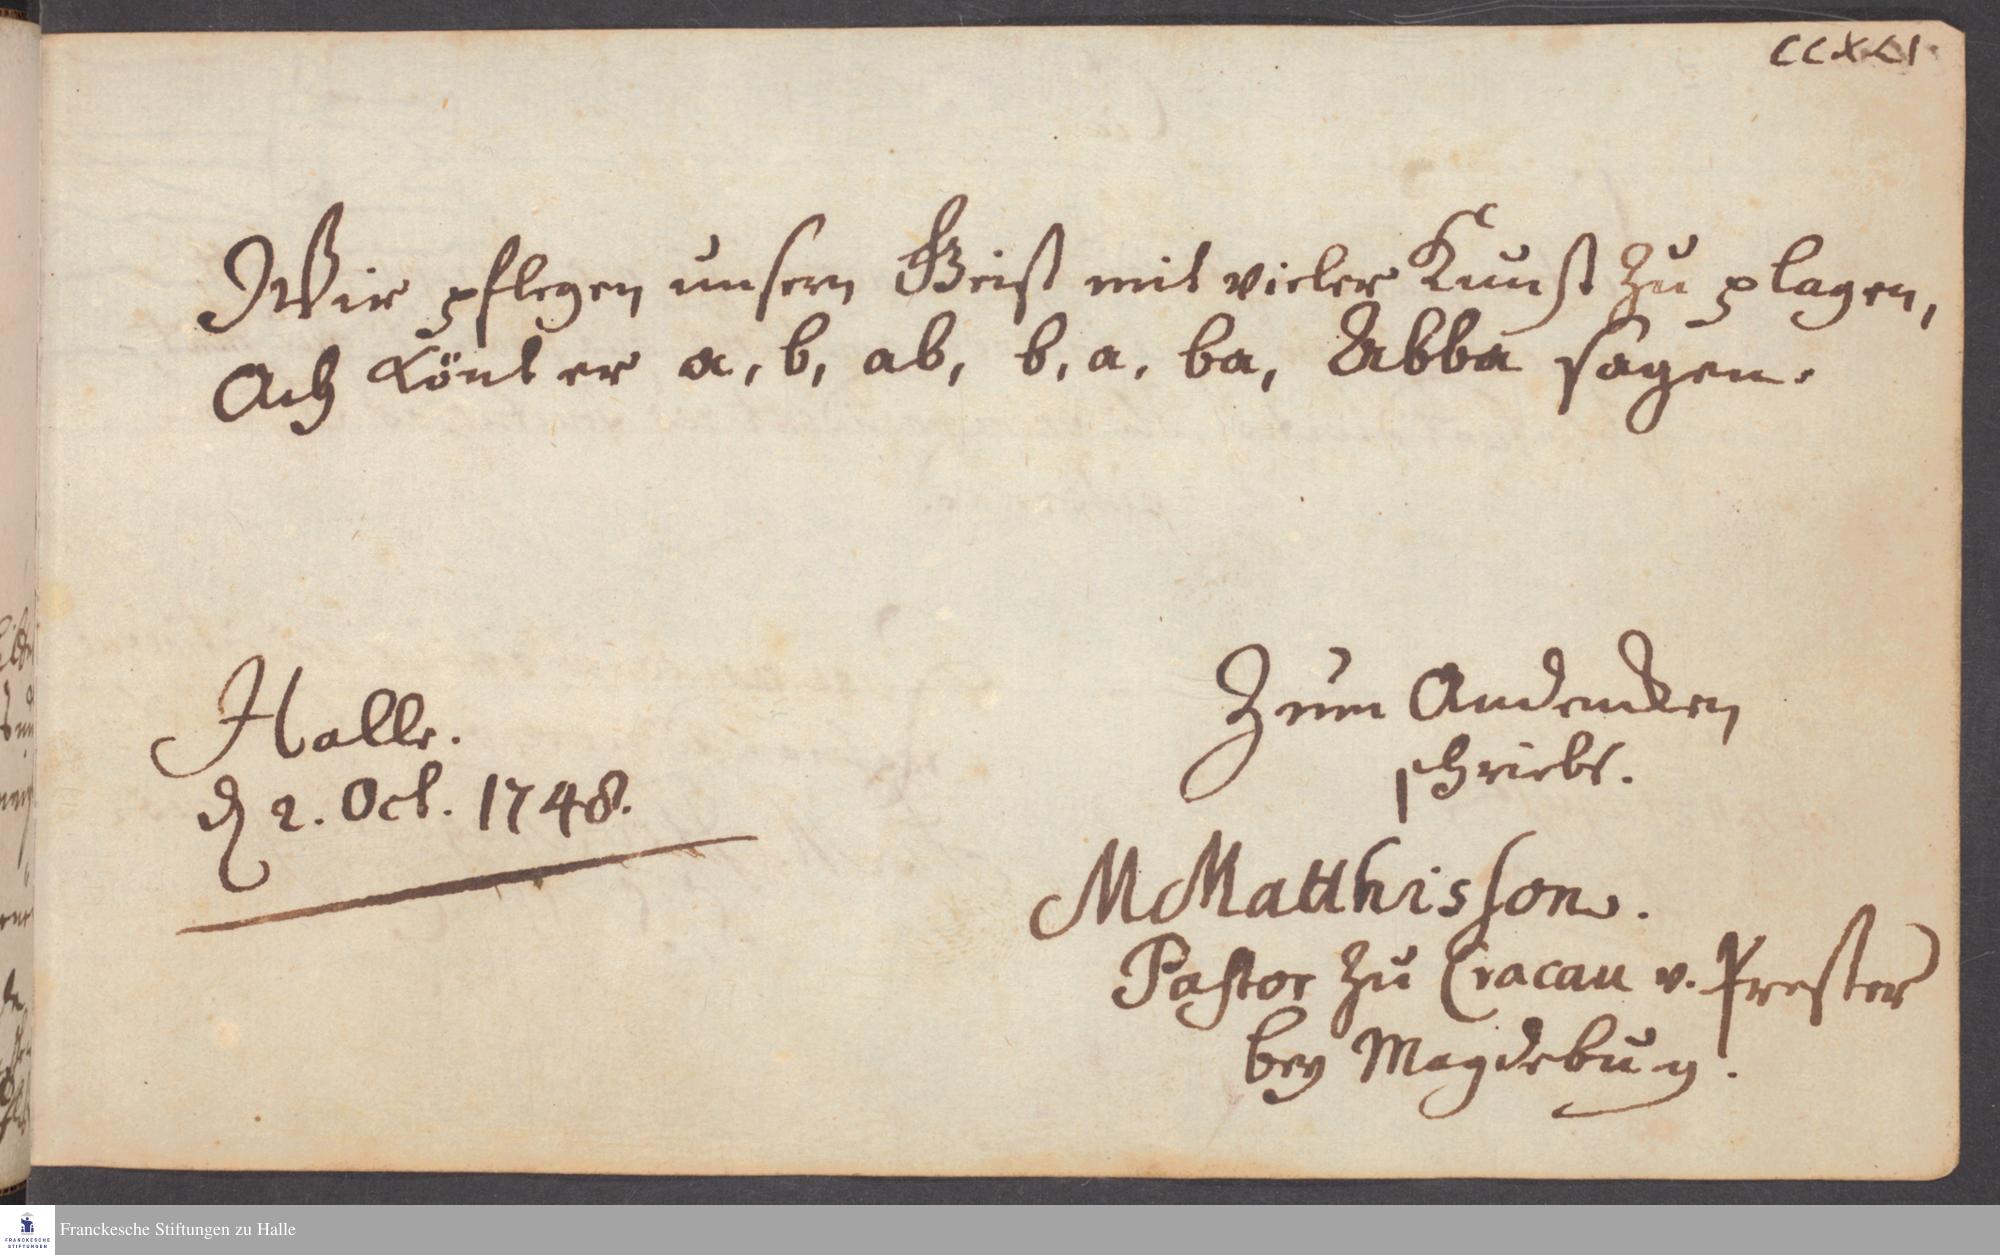 CCXCI
Wir pflegen unsern Geist mit vieler Kunst zu plagen,
Ach könt er a, b, ab, b, a, ba, Abba sagen.
Zum Andencken
schriebs.
Halle.
d 2. Oct. 1748.
M Matthisson.
Pastor zu Cracau u. Prester
bey Magdeburg.
Franckesche Stiftungen zu Halle
FRANCKESCHE
STIFTUNGEN